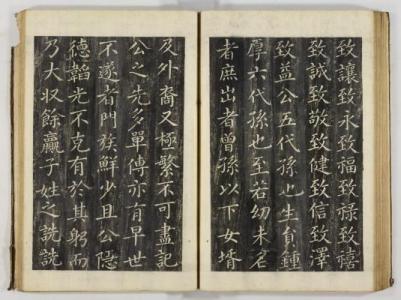 致讓致永致福致祿致禧
致誠致敬致健致信致澤
致益公五代孫也生員鍾
厚六代孫也至若幼未名
者庶出者曾孫以下女壻
及外裔又極繁不可盡記
公之先多單傳亦有早世
不遂者門族鮮少且公隱
德韜光不克有於其躬而
乃大収餘贏子姓之詵詵